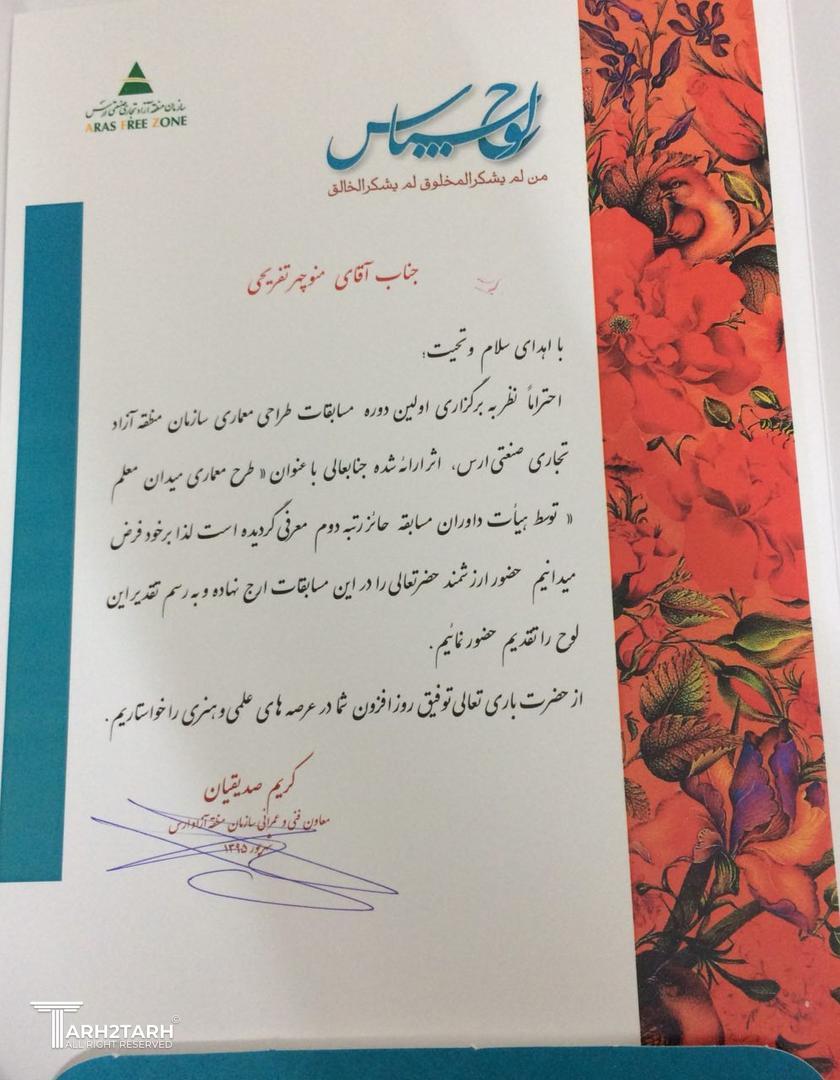 سازمان منطقه آزاد تجاری صنعتی ارس
ARAS FREE ZONE
لوح سپاس
من لم یشکرالمخلوق لم یشکرالخالق
جناب آقای منوچهر تفریحی
با اهدای سلام و تحیت؛
احتراماً نظر به برگزاری اولین دوره مسابقات طراحی معماری سازمان منطقه آزاد
تجاری صنعتی ارس، اثر ارائه شده جنابعالی با عنوان « طرح معماری میدان معلم
» توسط هیأت داوران مسابقه حائز رتبه دوم معرفی گردیده است لذا بر خود فرض
میدانیم حضور ارزشمند حضرتعالی را در این مسابقات ارج نهاده و به رسم تقدیر این
لوح را تقدیم حضور نمائیم.
از حضرت باری تعالی توفیق روز افزون شما در عرصه های علمی و هنری را خواستاریم.
کریم صدیقیان
معاون فنی و عمرانی سازمان منطقه آزاد ارس
شهریور ۱۳۹۵
TARH2TARH©
ALL RIGHT RESERVED